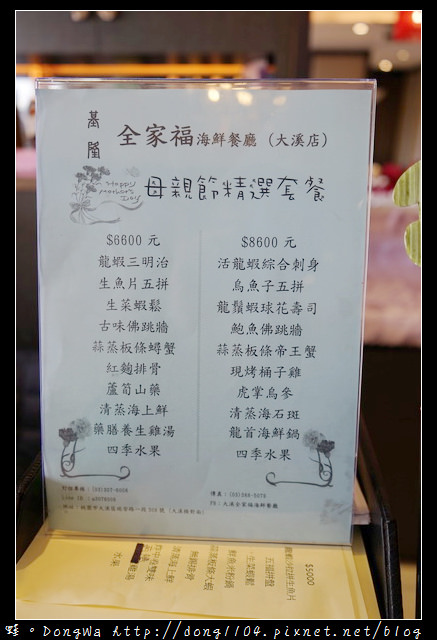 基隆
全家福海鮮餐廳（大溪店）
Happy
Mother's
Day
母親節精選套餐
$6600 元
龍蝦三明治
生魚片五拼
生菜蝦鬆
古味佛跳牆
蒜蒸板條蟳蟹
紅麴排骨
蘆筍山藥
清蒸海上鮮
藥膳養生雞湯
四季水果
$8600 元
活龍蝦綜合刺身
烏魚子五拼
龍鬚蝦球花壽司
鮑魚佛跳牆
蒜蒸板條帝王蟹
現烤桶子雞
虎掌烏參
清蒸海石斑
龍首海鮮鍋
四季水果
FB：大溪全家福海鮮餐廳
$5000
五福拼盤
生菜蝦鬆
水果
蛙。DongWa http://dong1104.pixnet.net/blog